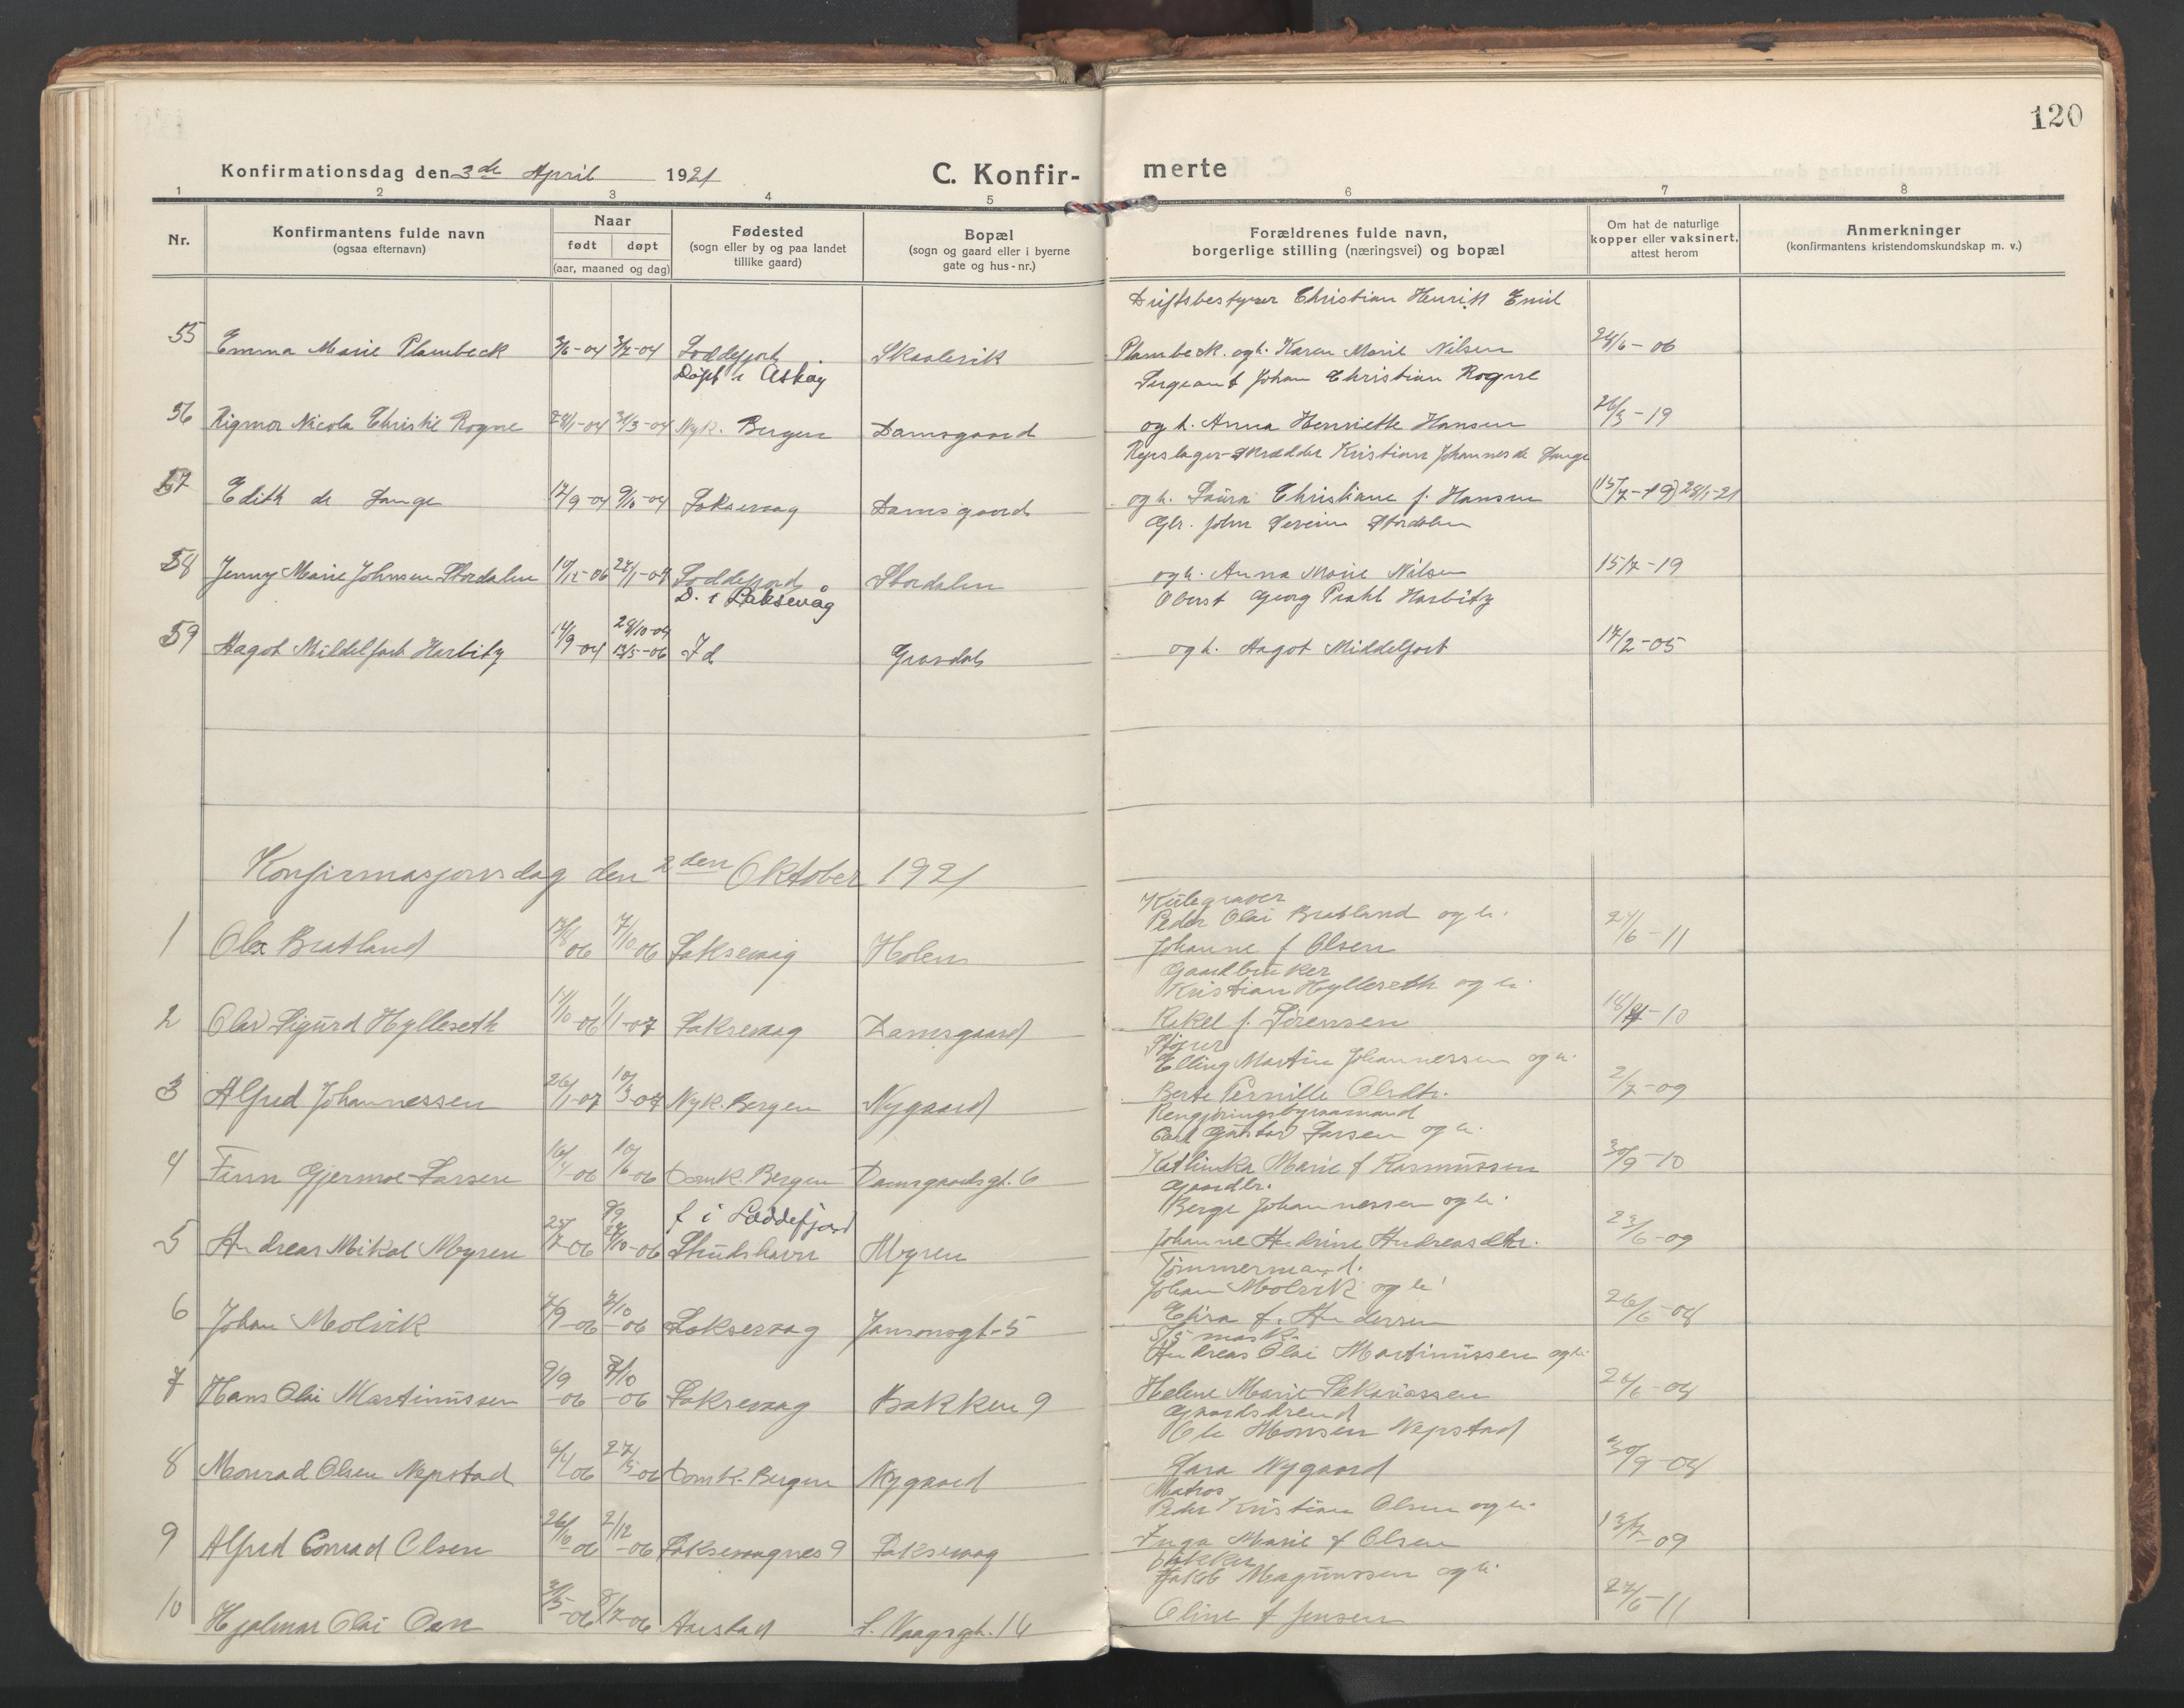 120
Konfirmationsdag den 3de April 1921
C. Konfir-
merte
1 2 3 4 5 6 7 8
Nr.
Konfirmantens fulde navn
(ogsaa efternavn)
Naar
født døpt
(aar, maaned og dag)
Fødested
(sogn eller by og paa landet
tillike gaard)
Bopæl
(sogn og gaard eller i byerne
gate og hus-nr.)
Forældrenes fulde navn,
borgerlige stilling (næringsvei) og bopæl
Om hat de naturlige
kopper eller vaksinert,
attest herom
Anmerkninger
(konfirmantens kristendomskundskap m. v.)
Driftsbestyrer Christian Henrik Emil
55 Emma Marie Plambeck 3/6-04 3/7-04 Loddefjord Skaalevik Plambeck. og h. Karen Marie Nilsen 28/6-06
Døpt i Askøy
Sergeant Johan Christian Rogne
56 Rigmor Nicola Christie Rogne 28/1-04 31/3-04 Nyk. Bergen Damsgaard og h. Anna Henriette Hansen 26/3-19
Repslager- Kristian Johannes de Lange
57 Edith de Lange 17/9-04 9/10-04 Laksevaag Damsgaard og h. Laura Christiane f. Hansen (15/7-19) 28/1-21
Gbr. John Severin Stordalen
58 Jenny Marie Johnsen Stordalen 10/12-06 27/1-07 Loddefjord Stordalen og h. Anna Marie Nilsen 15/7-19
D. i Laksevåg
Oberst Georg Prahl Harbitz
59 Aagot Middelfart Harbitz 14/9-04 28/10-04 Id Gravdal og h. Aagot Middelfart 17/2-05
13/5-06
Konfirmasjonsdag den 2den Oktober 1921
Peder Olai Bratland og h.
1 Ola Bratland 06 7/10 06 Laksevaag Holen Johanne f Olsen 27/6-11
Gaardbruker
Kristian Hylleseth og h.
2 Olav Sigurd Hylleseth 17/10-06 1/1-07 Laksevaag Damsgaard Rikel f. Sørensen 18/-10
Elling Martin Johannessen og h.
3 Alfred Johannessen 26/1-07 10/3-07 Nyk. Bergen Nygaard Berte Pernille Olsdtr. 2/7-09
Rengjøringsbyraamand
Carl Gustav Larsen og h.
4 Finn Gjermoe-Larsen 16/4-06 10/6-06 Domk. Bergen Damsgaardsgt. 6 Kathinka Marie f Rasmussen 30/9-10
Gaardbr.
f i Loddefjord
Berge Johannessen og h.
5 Andreas Mikal Myren 25/7-06 28/10-06 Strudshavn Myren Johanne Andrine Andreasdtr. 23/6-09
Tømmermand.
Johan Molvik og h
6 Johan Molvik 7/9-06 7/10-06 Laksevaag Jansonsgt-5 Elira f. Andersen 26/6-08
Andreas Olai Martinussen og h.
7 Hans Olai Martinussen 9/9-06 7/10-06 Laksevaag Bakken 9 Helene Marie Sakariassen 26/6-08
Ole Monsen Nepstad
8 Monrad Olsen Nepstad 6/4 06 27/5-06 Domk. Bergen Nygaard Lara Nygaard 30/9-08
Matros
Peder Kristian Olsen og h.
9 Alfred Conrad Olsen 26/10-06 2/12-06 Laksevaagnes 9 Laksevaag Inga Marie f Olsen 13/7-09
Jakob Magnussen og h.
10 Hjalmar Olai Oen 3/5-06 8/7-06 Aarstad L. Vaagsgt. 14 Oline f Jensen 27/6-11